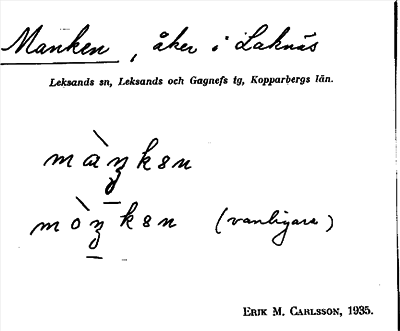 Manken, åker i Laknäs
Leksands sn, Leksands och Gagnefs tg, Kopparbergs län.
màŋksn
mòŋksn (vanligare)
ERIK M. CARLSSON, 1935.